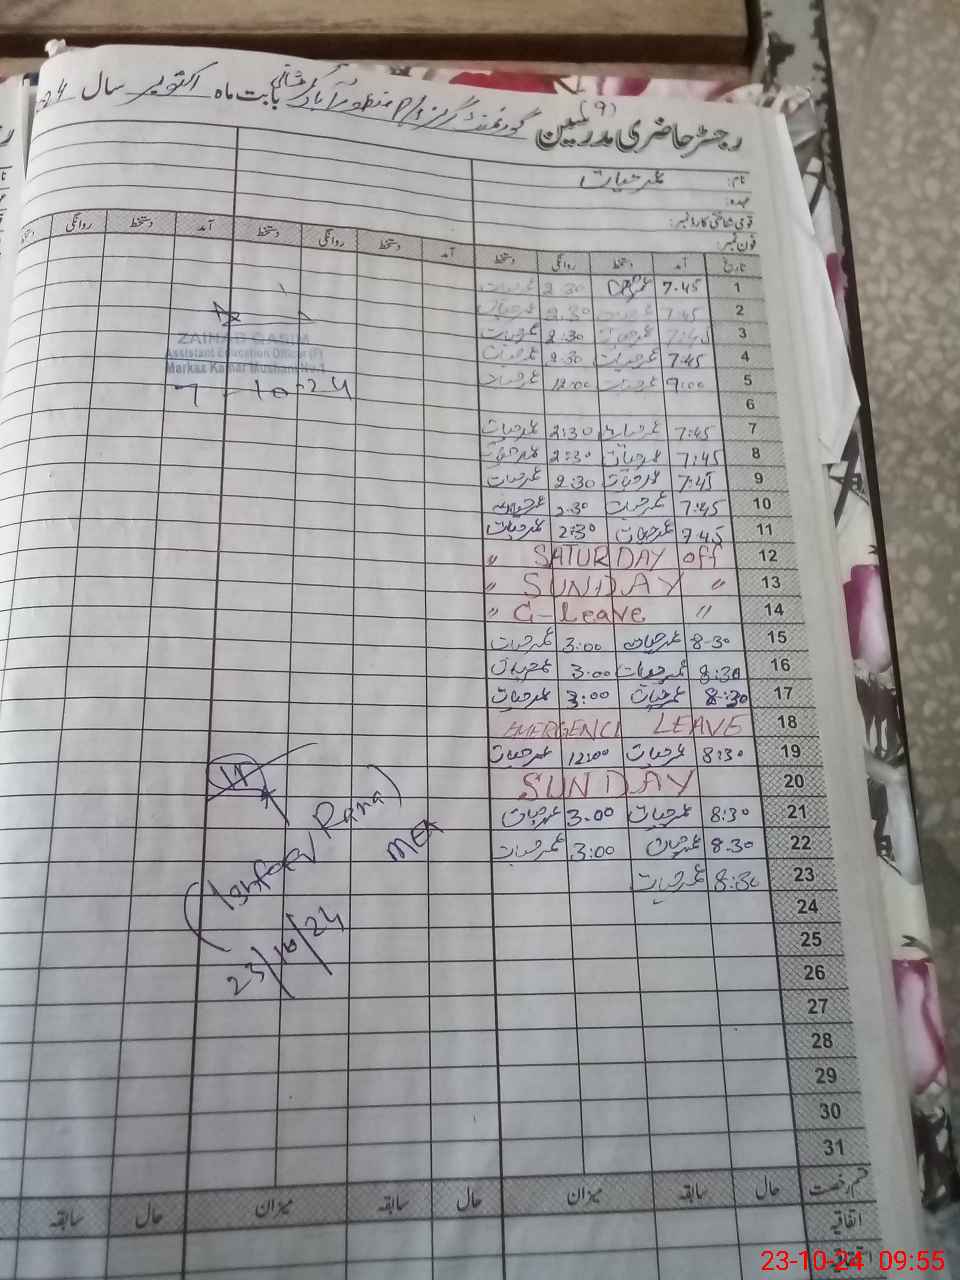 (9)
رجسٹر حاضری مدرسین گورنمنٹ گرلز P/S منظور آباد بابت ماہ اکتوبر سال
نام: عمر حیات
عہدہ:
قومی شناختی کارڈ نمبر:
فون نمبر:
تاریخ آمد دستخط روانگی دستخط آمد دستخط روانگی دستخط آمد دستخط روانگی
1 7.45 2.30
2 7:45 عمر حیات 2.30 عمر حیات
3 7:45 عمر حیات 2:30 عمر حیات
4 7:45 عمر حیات 2.30 عمر حیات
5 9:00 عمر حیات 12:00 عمر حیات
6
7 7:45 عمر حیات 2:30 عمر حیات
8 7:45 عمر حیات 2:30 عمر حیات
9 7:45 عمر حیات 2:30 عمر حیات
10 7:45 عمر حیات 2.30 عمر حیات
11 7.45 عمر حیات 2:30 عمر حیات
12 " SATURDAY off
13 " SUNDAY "
14 " C-Leave "
15 8-30 عمر حیات 3:00 عمر حیات
16 8:30 عمر حیات 3:00 عمر حیات
17 8:30 عمر حیات 3:00 عمر حیات
18 EMERGENCY LEAVE
19 8:30 عمر حیات 12:00 عمر حیات
20 SUNDAY
21 8:30 عمر حیات 3.00 عمر حیات
22 8.30 عمر حیات 3:00 عمر حیات
23 8:30 عمر حیات
24
25
26
27
28
29
30
31
ZAINAB QASIM
Assistant Education Officer (F)
Markaz Kamar Mushani No.1
7-10-24
Rana)
MEA
23/10/24
قسم رخصت حال سابقہ میزان حال سابقہ میزان حال سابقہ
اتفاقیہ
23-10-24 09:55